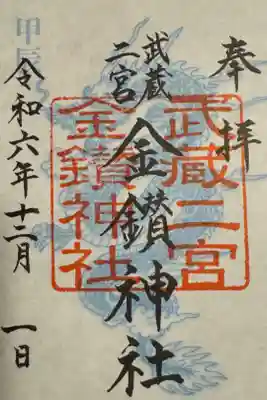 奉拝
武蔵二宮
金鑚神社
武蔵二宮
金鑚神社
令和六年十二月一日
甲辰